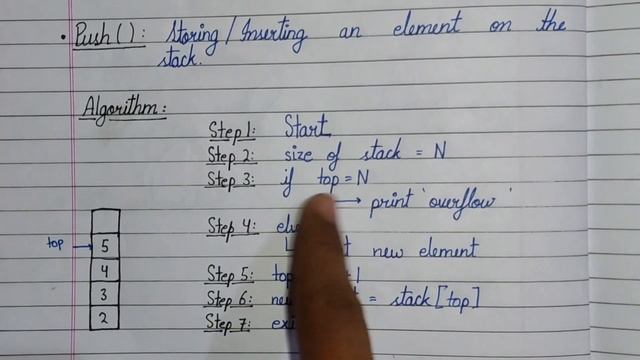 • Push(): Storing/Inserting an element on the
stack.
Algorithm:
Step 1: Start
Step 2: size of stack = N
Step 3: if top = N
→ print 'overflow'
Step 4:
new element
Step 5:
Step 6: = stack[top]
Step 7:
top → 5
4
3
2